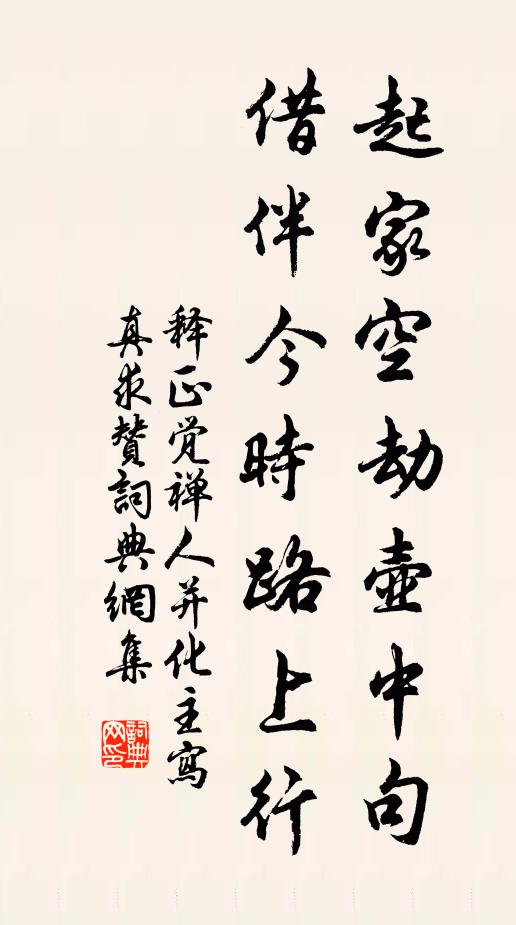 起家空劫壺中句
借伴今時路上行
释正觉禅人并化主寫
真求賛詞典網集
詞典
网印